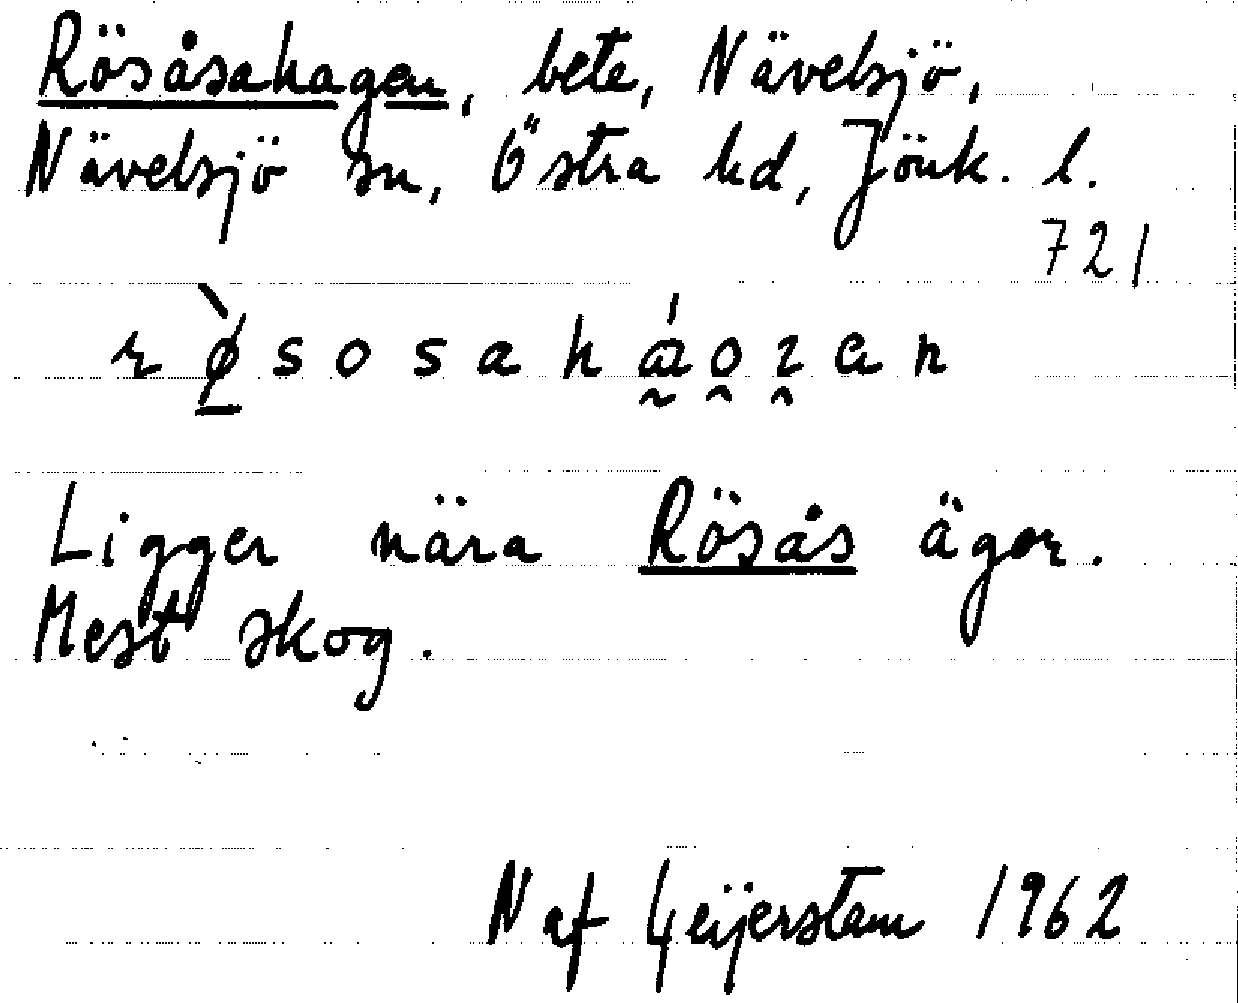 Rösåsahagen, bete, Nävelsjö,
Nävelsjö sn, Östra hd, Jönk. l.
721
Ligger nära Rösås ägor.
Mest skog.
N af Geijerstam 1962